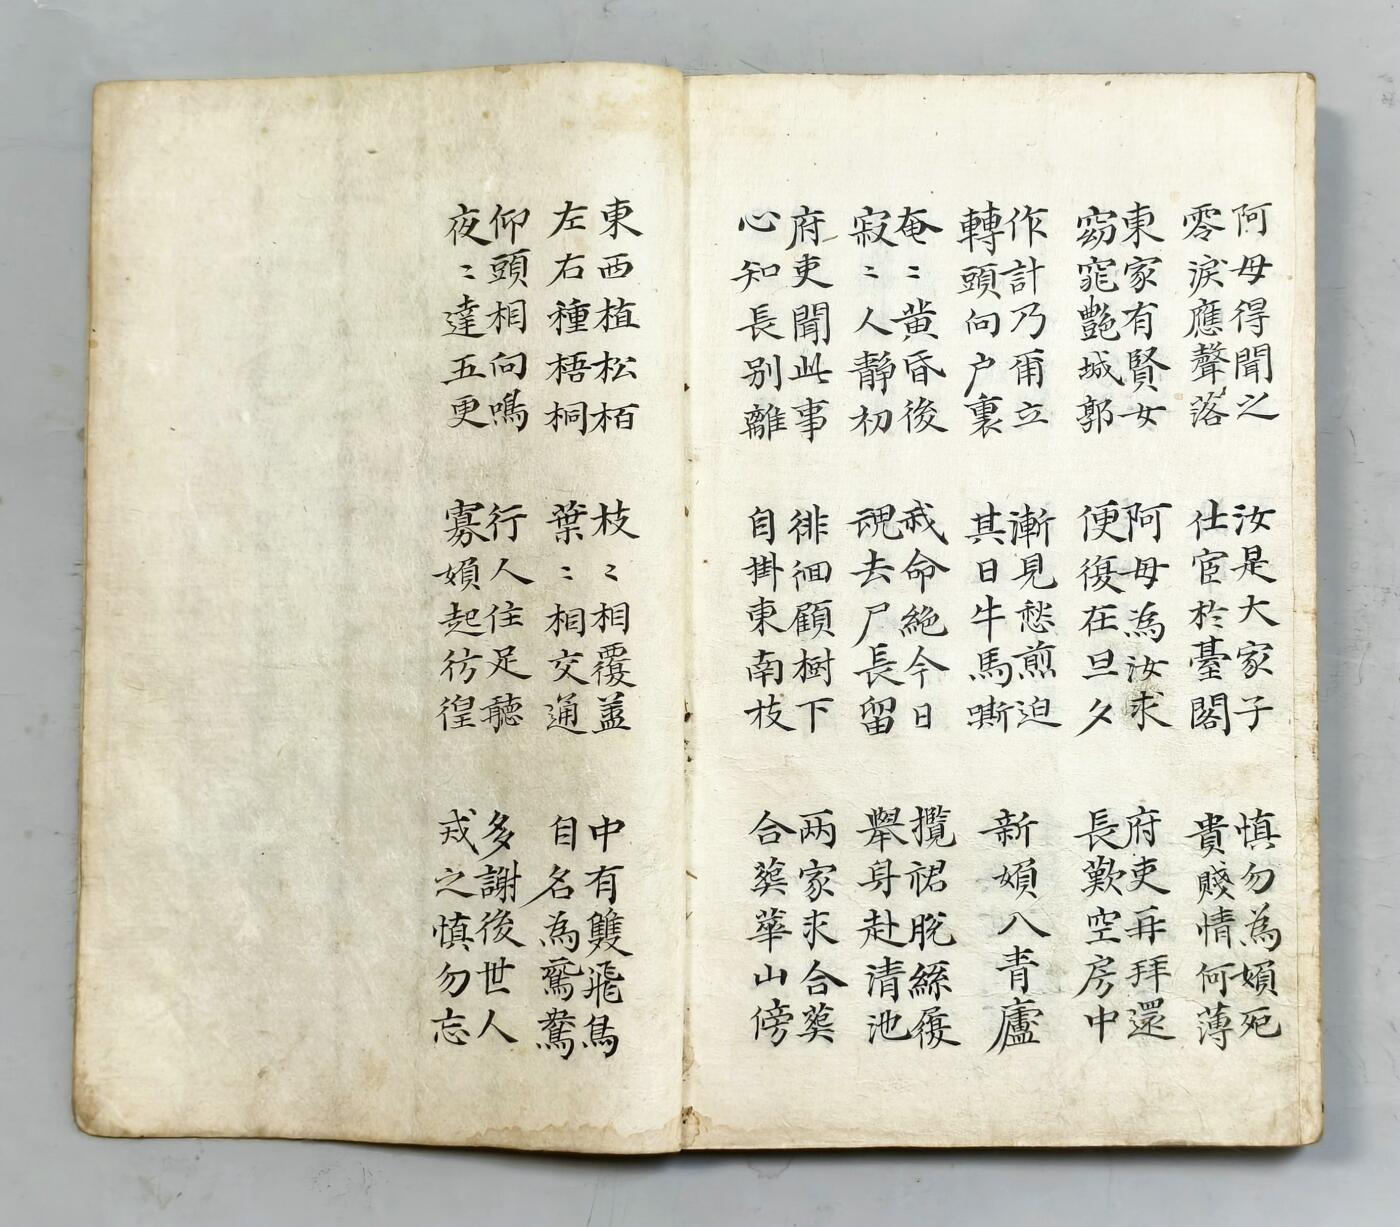 阿母得聞之
零淚應聲落
汝是大家子
仕宦於臺閣
慎勿為媍死
貴賤情何薄
東家有賢女
窈窕艷城郭
阿母為汝求
便復在旦夕
府吏再拜還
長歎空房中
作計乃爾立
轉頭向户裏
漸見愁煎迫
其日牛馬嘶
新媍入青廬
奄〻黄昏後
寂〻人靜初
我命絕今日
魂去尸長留
攬裙脫絲履
舉身赴清池
府吏聞此事
心知長别離
徘徊顧樹下
自掛東南枝
两家求合葬
合葬華山傍
東西植松栢
左右種梧桐
枝〻相覆盖
葉〻相交通
中有雙飛鳥
自名為鴛鴦
仰頭相向鳴
夜〻達五更
行人住足聽
寡媍起彷徨
多謝後世人
戒之慎勿忘